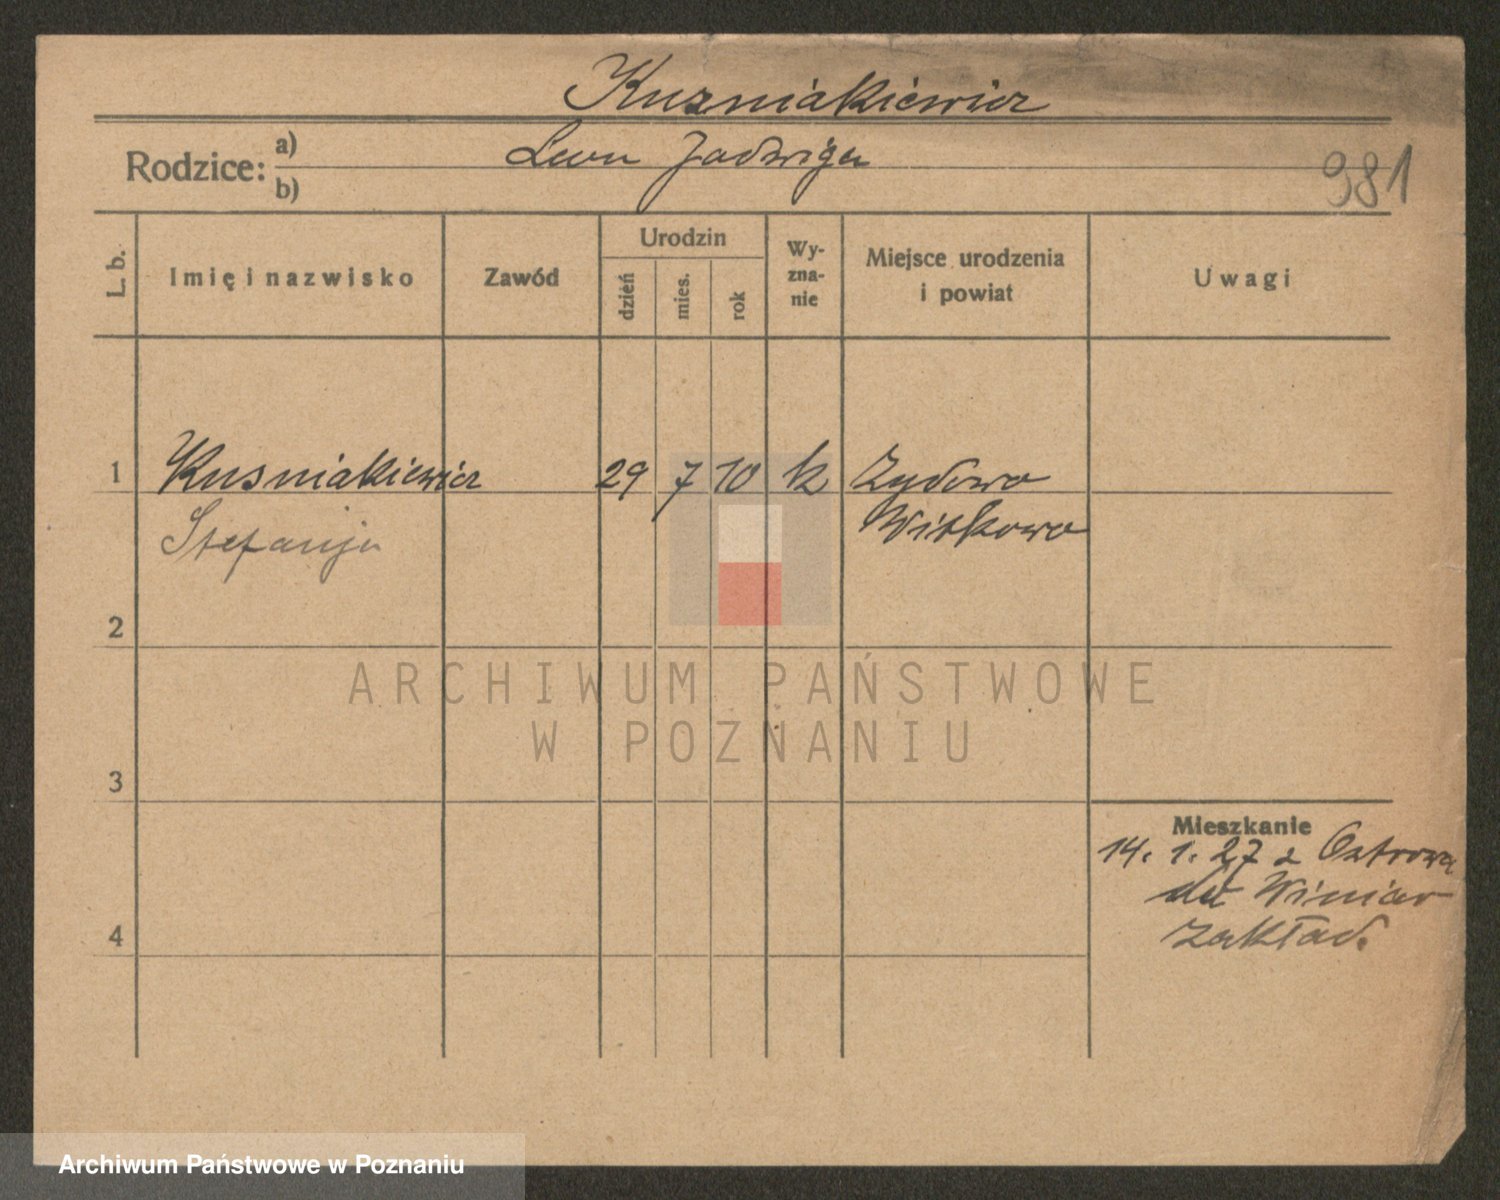 Kuzniakiewicz
Rodzice: a) Leon Jadwiga
b)
981
L. b.
Imię i nazwisko
Zawód
Urodzin
dzień
mies.
rok
Wy-
zna-
nie
Miejsce urodzenia
i powiat
Uwagi
1 Kusniakiewicz 29 7 10 k Zydowo
Stefanja Witkowo
2
ARCHIWUM PAŃSTWOWE
W POZNANIU
3
Mieszkanie
14. 1. 27 z Ostrowa
do Winiar
zakład.
4
Archiwum Państwowe w Poznaniu